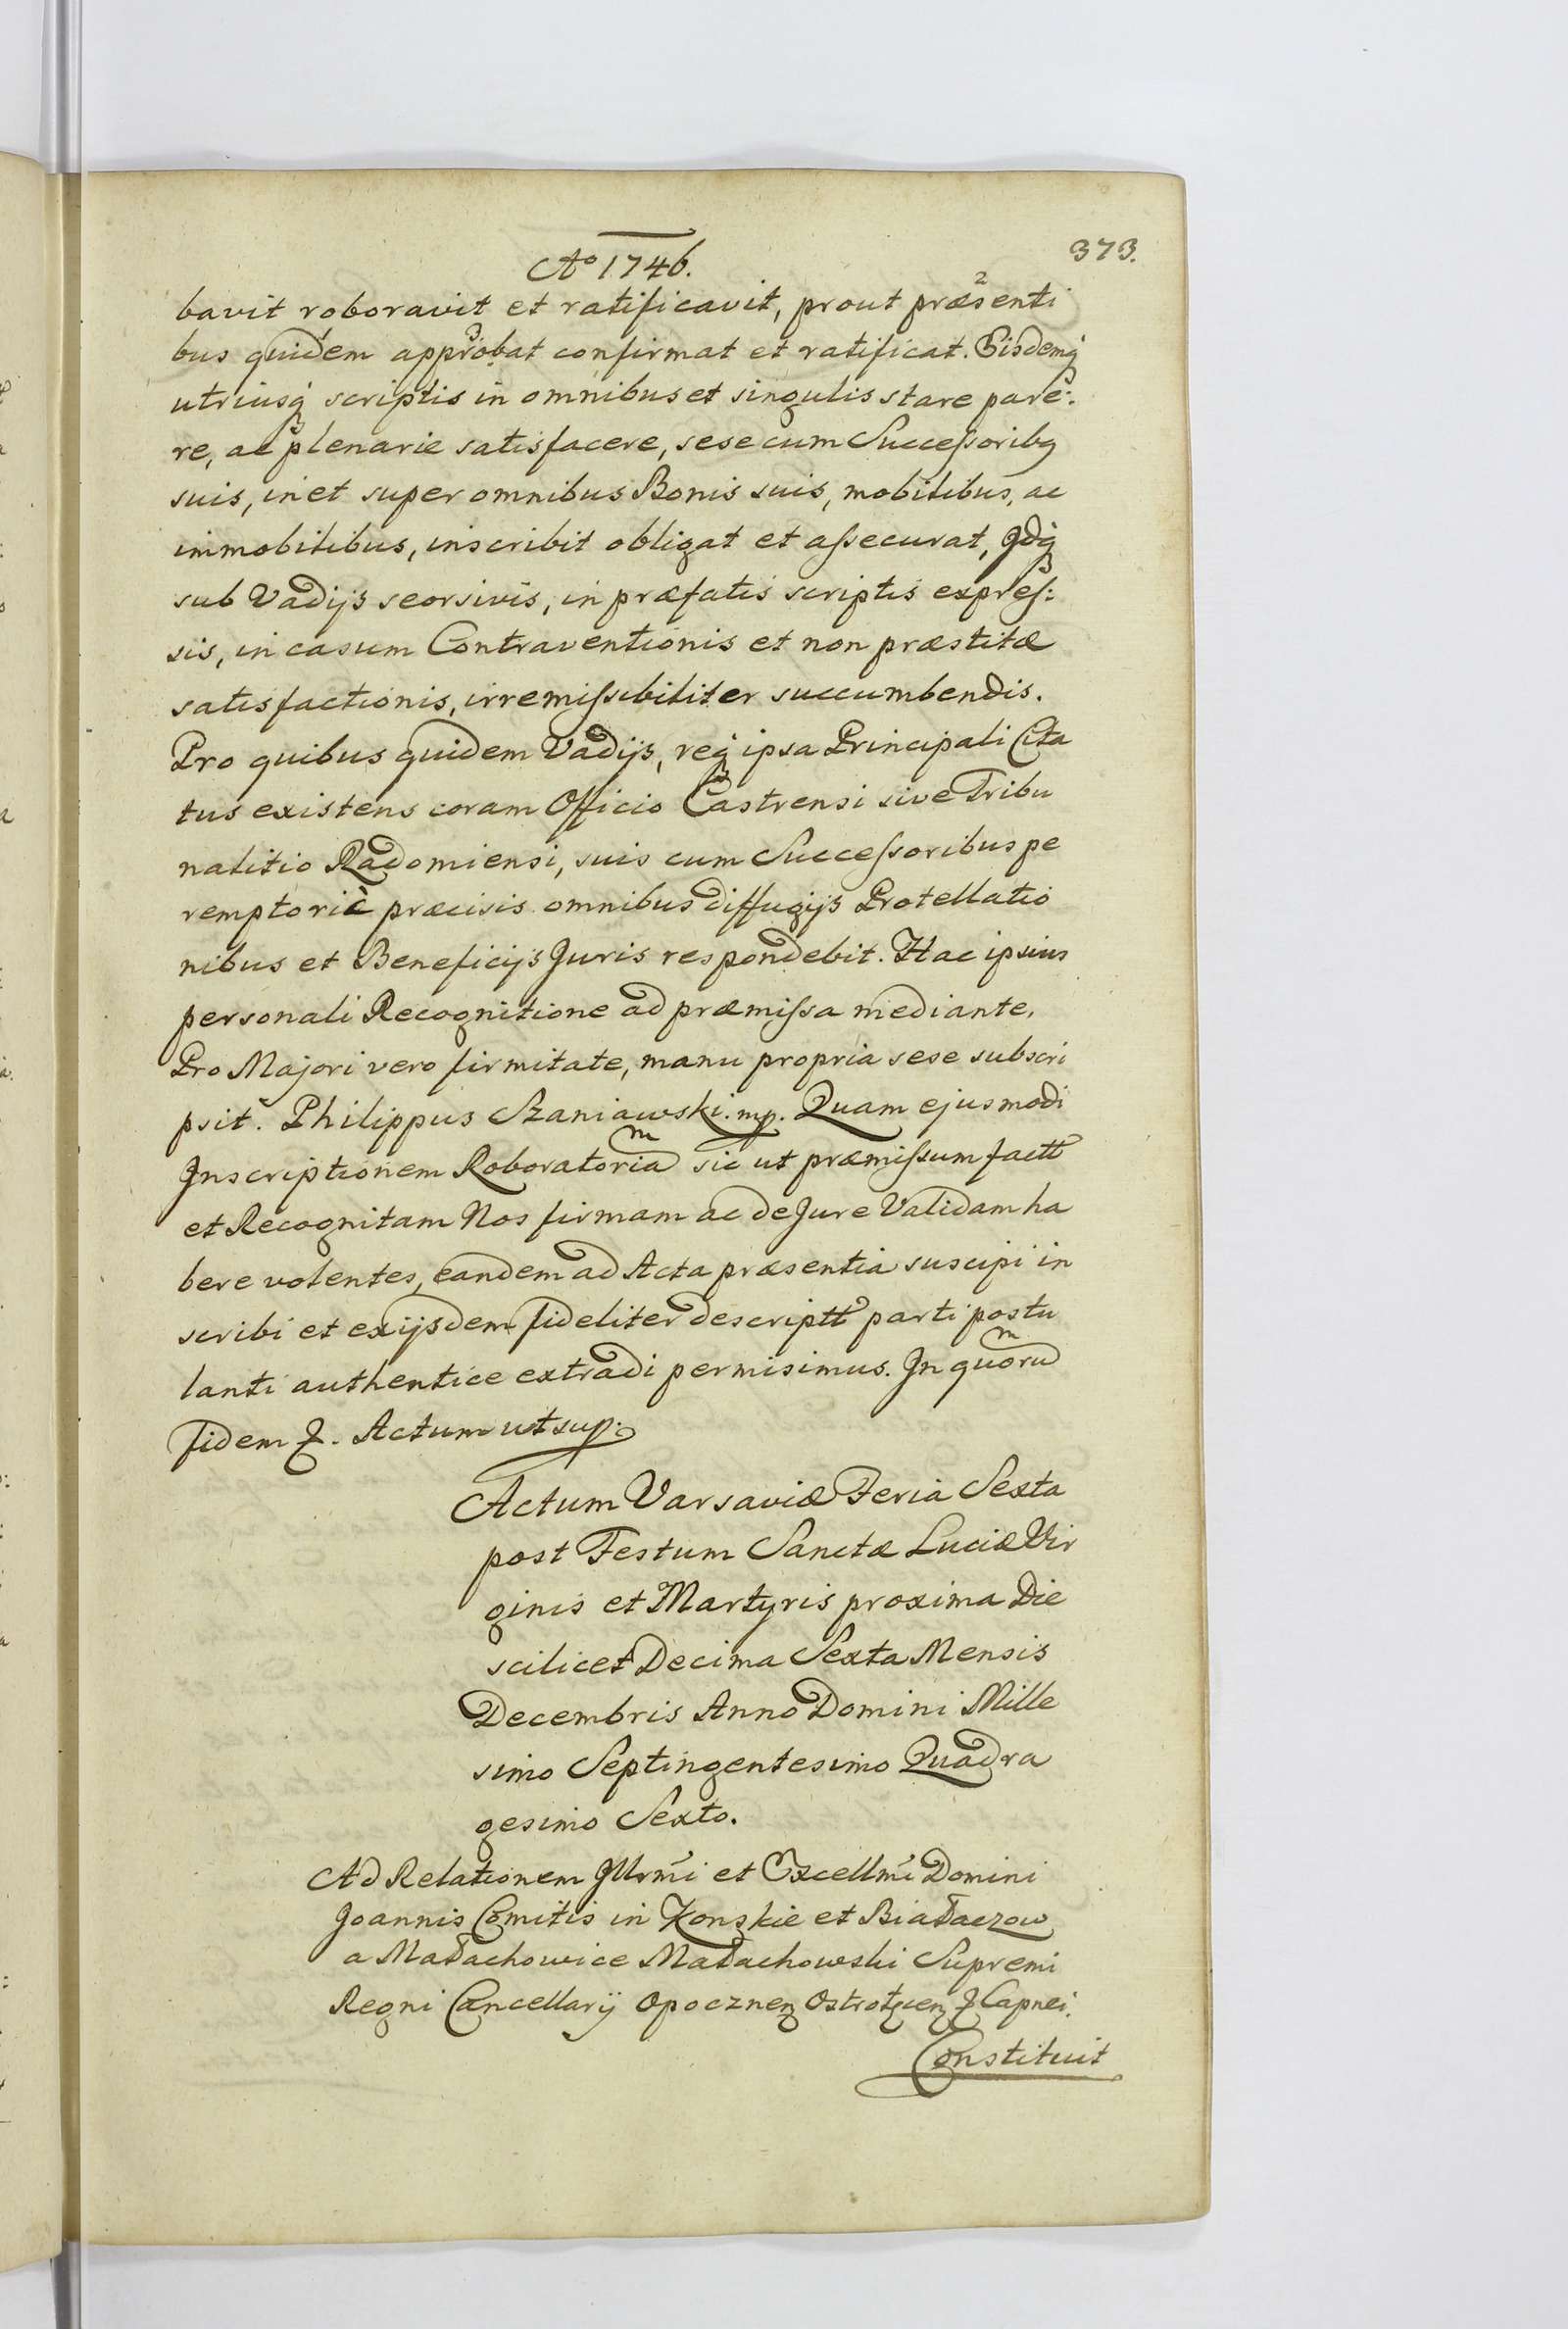 Aº 1746.
373.
bavit roboravit et ratificavit, prout præsenti
bus quidem approbat confirmat et ratificat. Eisdemq́
utriusq́ scriptis in omnibus et singulis stare pare:
re, ac plenarie satisfacere, sese cum Succeſsoribq
suis, in et super omnibus Bonis suis, mobilibus, ac
immobilibus, inscribit obligat et aſsecurat, Jdq́
sub Vadijs seorsivis, in præfatis scriptis expreſ:
sis, in casum Contraventionis et non præstitæ
satisfactionis, irremiſsibiliter succumbendis.
Pro quibus quidem Vadijs, req́ ipsa Principali Cita
tus existens coram Officio Castrensi sive Tribu
nalitio Radomiensi, suis cum Succeſsoribus pe
remptoriè præcisis omnibus diffugijs Protellatio
nibus et Beneficijs Juris respondebit. Hac ipsius
personali Recognitione ad præmiſsa mediante.
Pro Majori vero firmitate, manu propria sese subscri
psit. Philippus Szaniawski. mp. Quam ejusmodi
Jnscriptionem Roboratoriaᵐ sic ut præmiſsum factt
et Recognitam Nos firmam ac de Jure Validam ha
bere volentes, eandem ad Acta præsentia suscipi in
scribi et exijsdem fideliter descriptt parti postu
lanti authentice extradi permisimus. Jn quoruᵐ
fidem &. Actum ut sup:
Actum Varsaviæ Feria Sexta
post Festum Sanctæ Luciæ Vir
ginis et Martyris proxima Die
scilicet Decima Sexta Mensis
Decembris Anno Domini Mille
simo Septingentesimo Quadra
gesimo Sexto.
Ad Relationem Jllrmi et Excellmi Domini
Joannis Comitis in Konskie et Białaczow
a Małachowice Małachowski Supremi
Regni Cancellarij Opocznen Ostrołęcen & Capnei.
Constituit